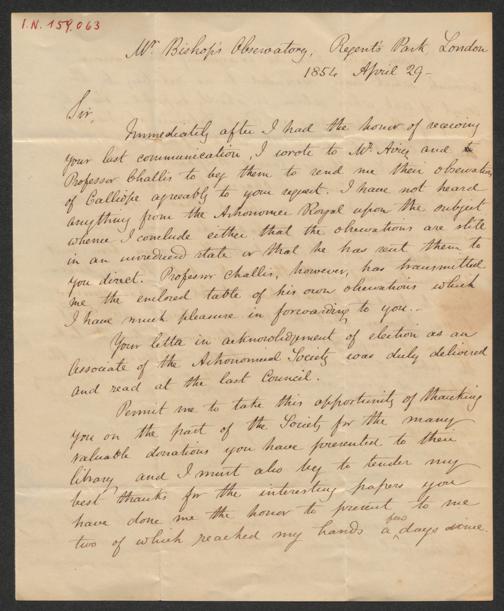 I.N. 159,063
Mr. Bishop's Observatory, Regent's Park London
1854 April 29 -
Sir,
Immediately after I had the honor of receiving
your last communication, I wrote to Mr. Airy and to
Professor Challis to beg them to send me their observations
of Calliope agreeably to your request. I have not heard
anything from the Astronomer Royal upon the subject
whence I conclude either that the observations are still
in an unreduced state or that he has sent them to
you direct. Professor Challis, however, has transmitted
me the enclosed table of his own observations which
I have much pleasure in forwarding to you. -
Your letter in acknowledgement of election as an
Associate of the Astronomical Society was duly delivered
and read at the last Council.
Permit me to take this opportunity of thanking
you on the part of the Society for the many
valuable donations you have presented to their
library and I must also beg to tender my
best thanks for the interesting papers you
have done me the honor to present to me
two of which reached my hands a few days since.